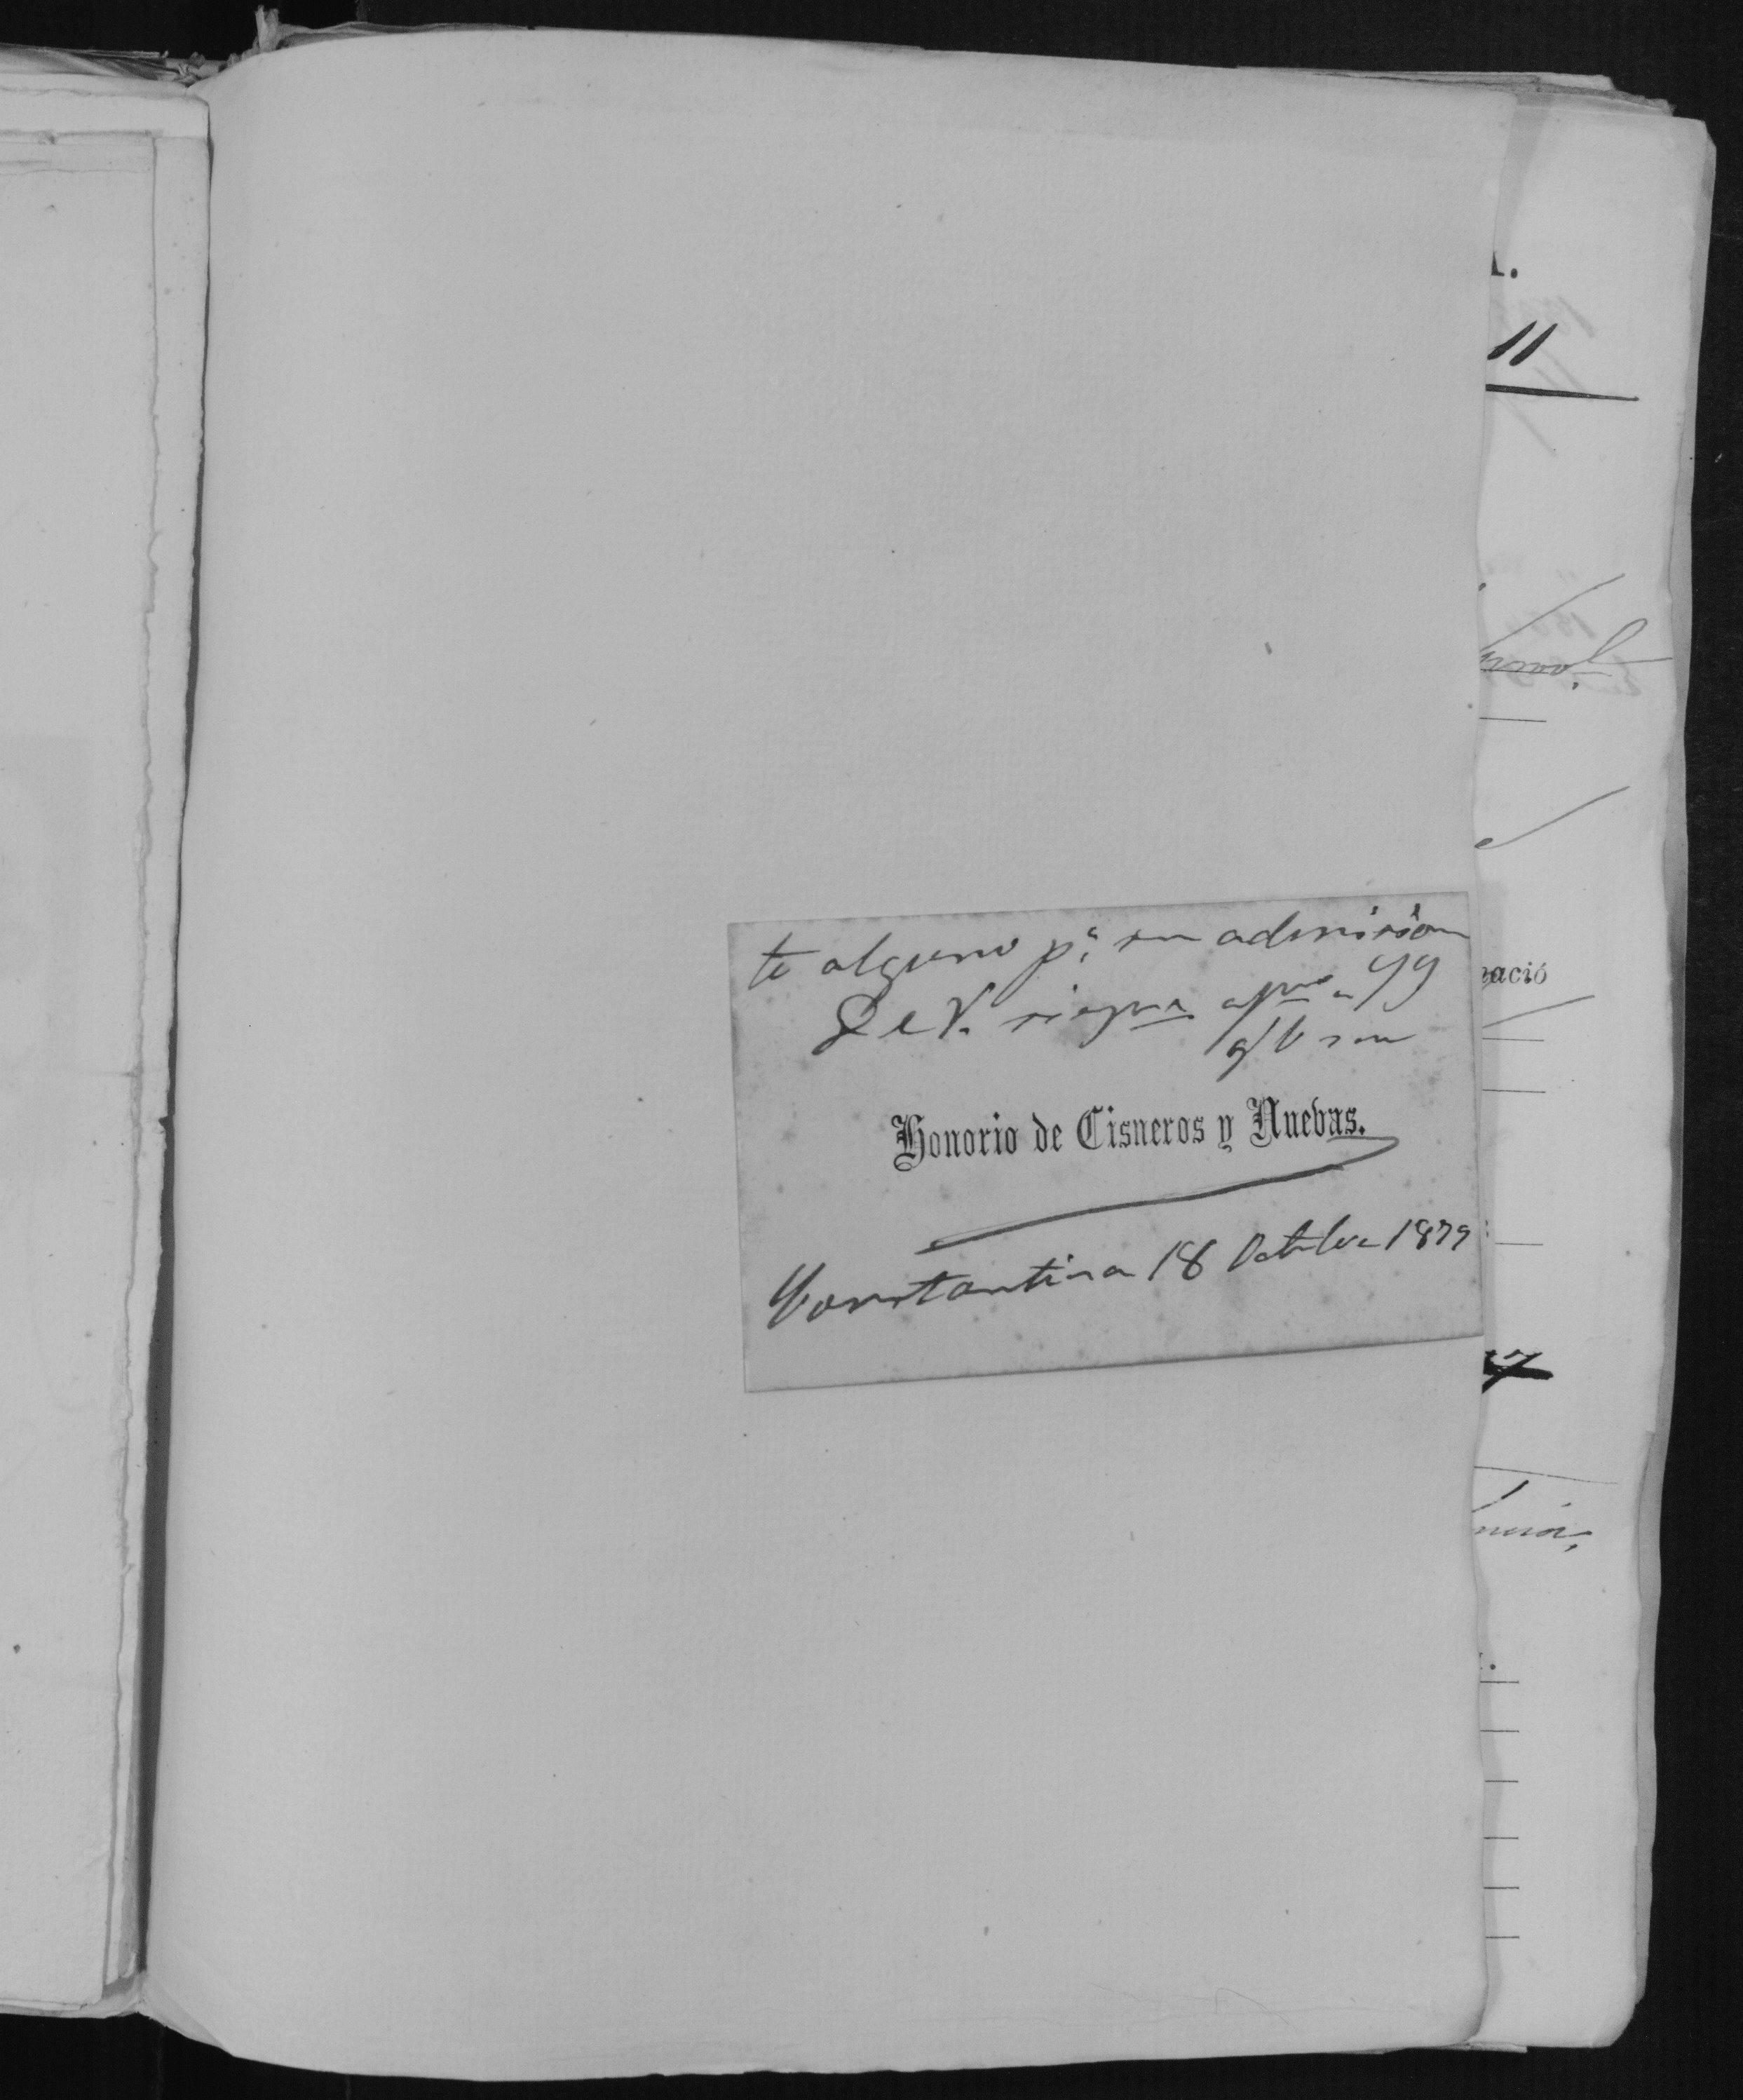 te alguno pª su admision
De V. siempre afmo a
q b s m
Honorio de Cisneros y Nuevas.
Constantina 18 Octubre 1879
11
nació